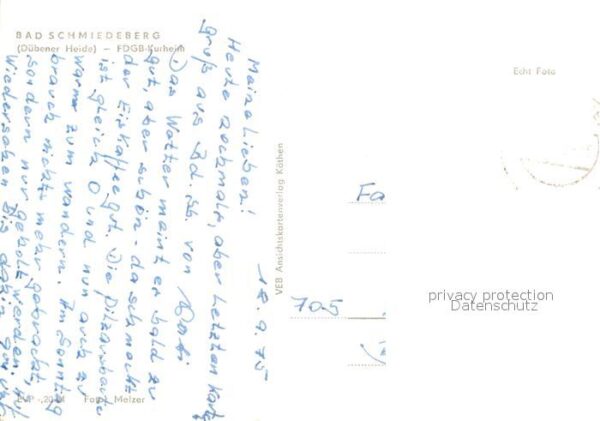 BAD SCHMIEDEBERG
(Dübener Heide) — FDGB-Kurheim
17.9.75
Meine Lieben!
Heute nochmals, aber letzten Karte
gruß aus Bd. Sb. von
Das Wetter meint er bald zu
gut, aber schön - da schmeckt
der Eiskaffee gut. Die Pilzausbeute
ist gleich 0 und nun auch zu
warm zum wandern. Am Sonntag
brauch nicht mehr gebracht,
sondern nur geholt werden.
Wiedersehen Bis dahin
Foto: Melzer
VEB Ansichtskartenverlag Köthen
Echt Foto
Fa
705
privacy protection
Datenschutz